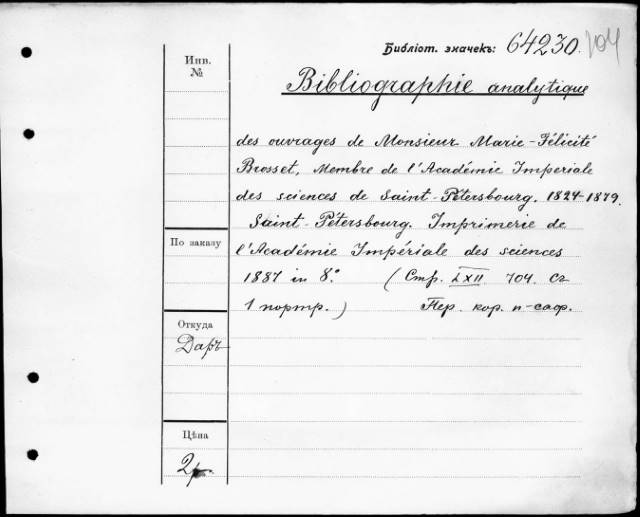 Библіот. значекъ: 64230. 704
Инв.
№
Bibliographie analytique
des ouvrages de Monsieur Marie-Félicité
Brosset, Membre de l'Académie Impériale
des sciences de Saint-Pétersbourg. 1824-1879.
Saint-Pétersbourg. Imprimerie de
По заказу
l'Académie Impériale des sciences
1887 in 8°. (Стр. LXII 704. Съ
1 портр.) Пер. кор. п-саф.
Откуда
Даръ
Цѣна
2р.